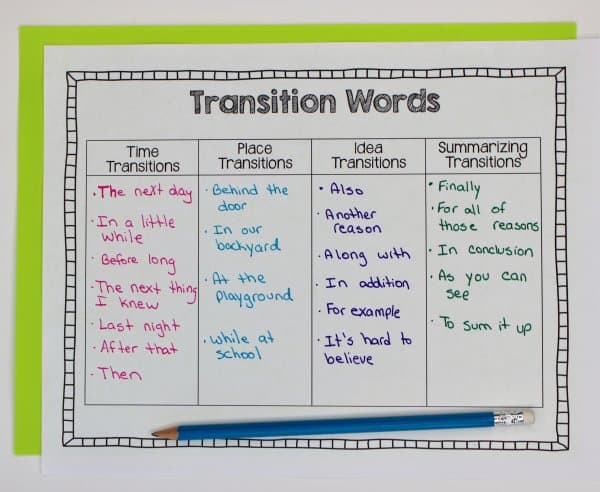 Transition Words
Time
Transitions
· The next day
· In a little
while
· Before long
· The next thing
I knew
· Last night
· After that
· Then
Place
Transitions
· Behind the
door
· In our
backyard
· At the
playground
· While at
school
Idea
Transitions
· Also
· Another
reason
· Along with
· In addition
· For example
· It's hard to
believe
Summarizing
Transitions
· Finally
· For all of
those reasons
· In conclusion
· As you can
see
· To sum it up